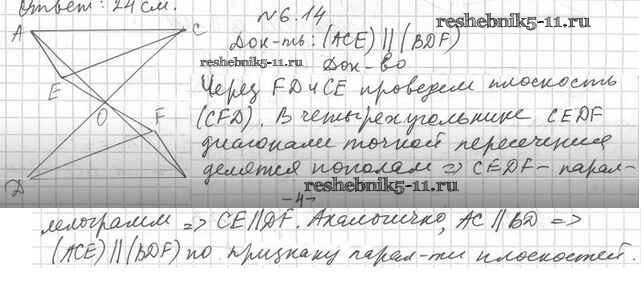 Ответ: 24 см.
№6.14
reshebnik5-11.ru
A C
Док-ть: (ACE) || (BDF)
Док-во
E
Через FD и CE проведем плоскость
O F
(CFD). В четырехугольнике CEDF
диагонали точкой пересечения
делятся пополам => CEDF - парал-
D
reshebnik5-11.ru
-4-
лелограмм => CE || DF. Аналогично, AC || BD =>
(ACE) || (BDF) по признаку парал-ти плоскостей.